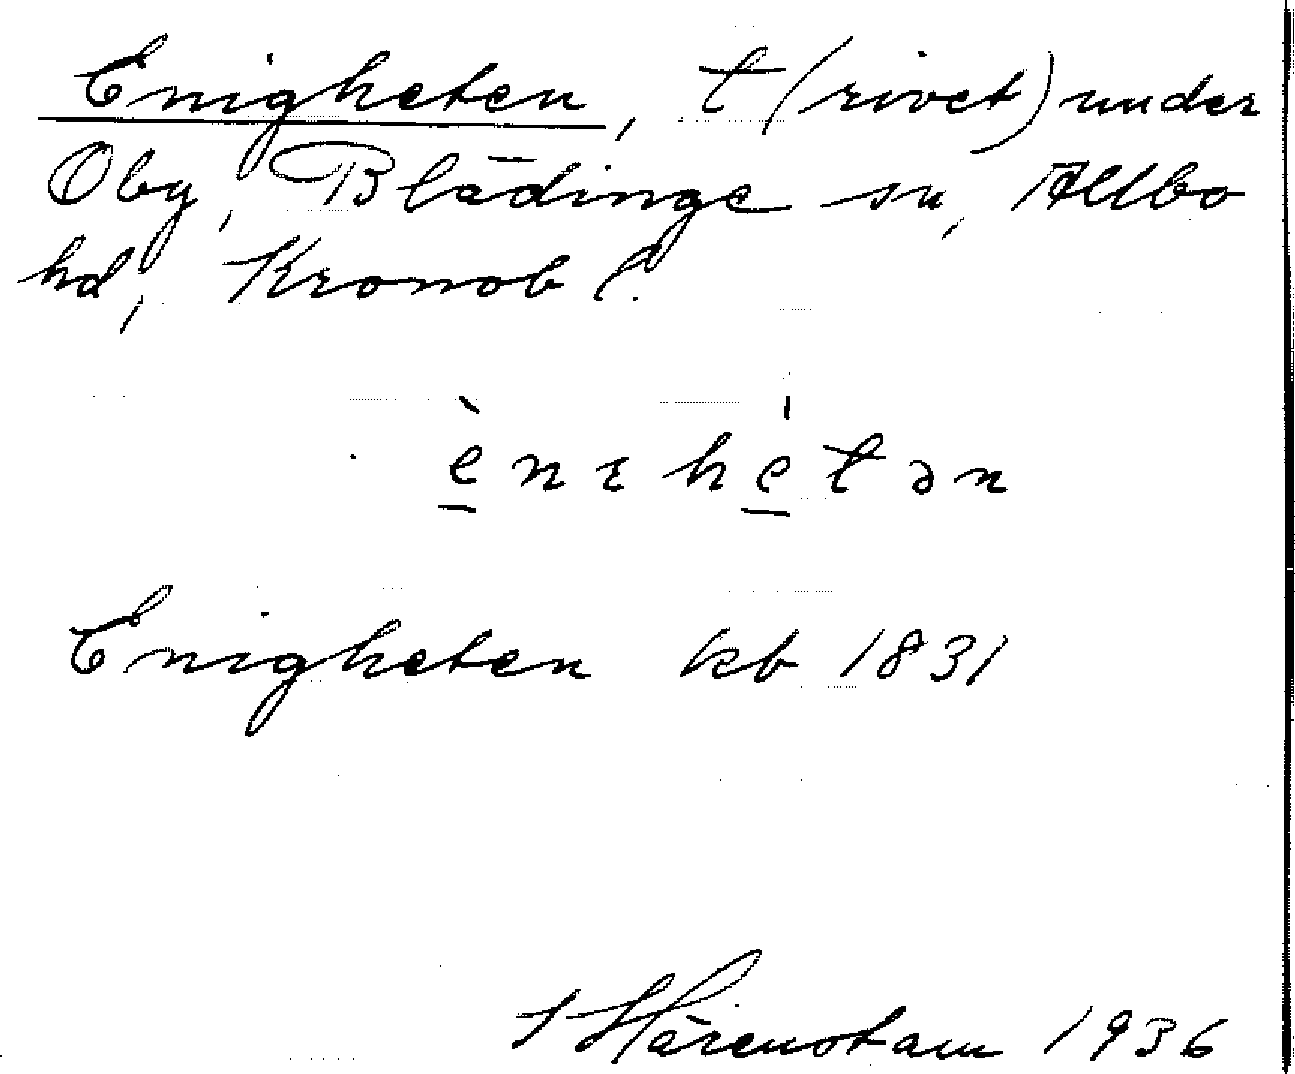 Enigheten, t (rivet) under
Oby, Blädinge sn, Allbo
hd, Kronob l.
ènɩhétən
Enigheten kb 1831
J Härenstam 1936